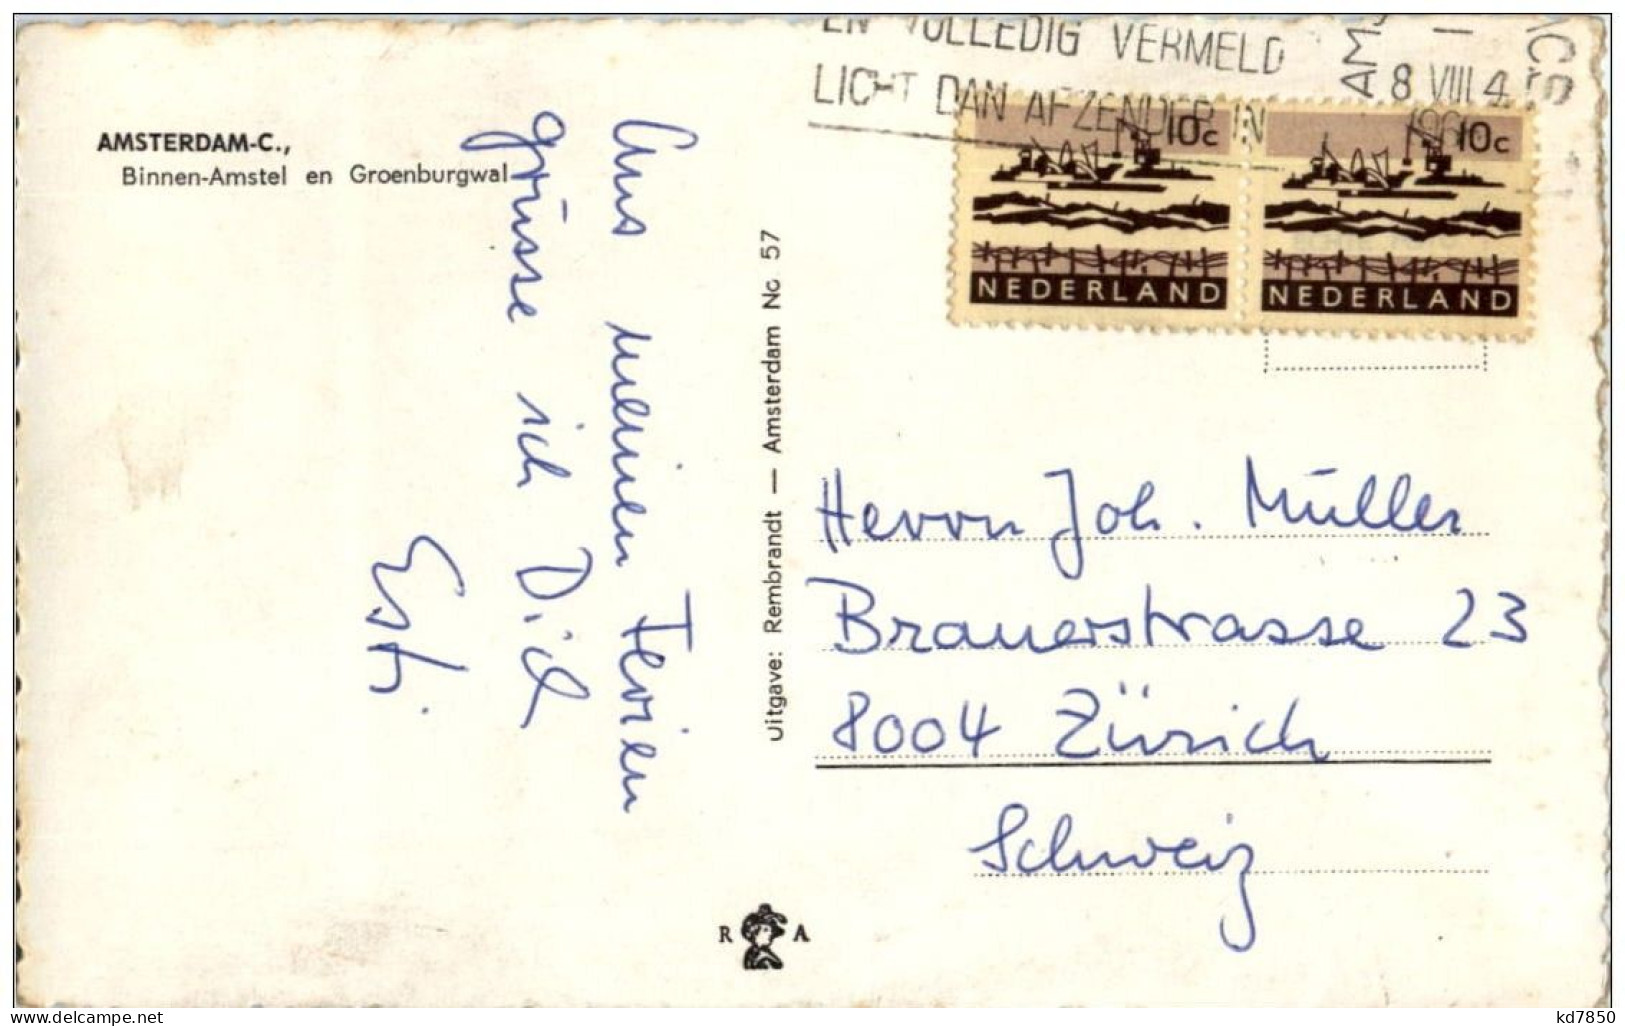 EN VOLLEDIG VERMELD
LICHT DAN AFZENDER IN
8 VIII 4
10c
10c
NEDERLAND
NEDERLAND
AMSTERDAM-C.,
Binnen-Amstel en Groenburgwal
Aus meinen Ferien
grüsse ich Dich
Esti
Uitgave: Rembrandt — Amsterdam No 57
Herrn Joh. Müller
Brauerstrasse 23
8004 Zürich
Schweiz
R A
delcampe.net
kd7850